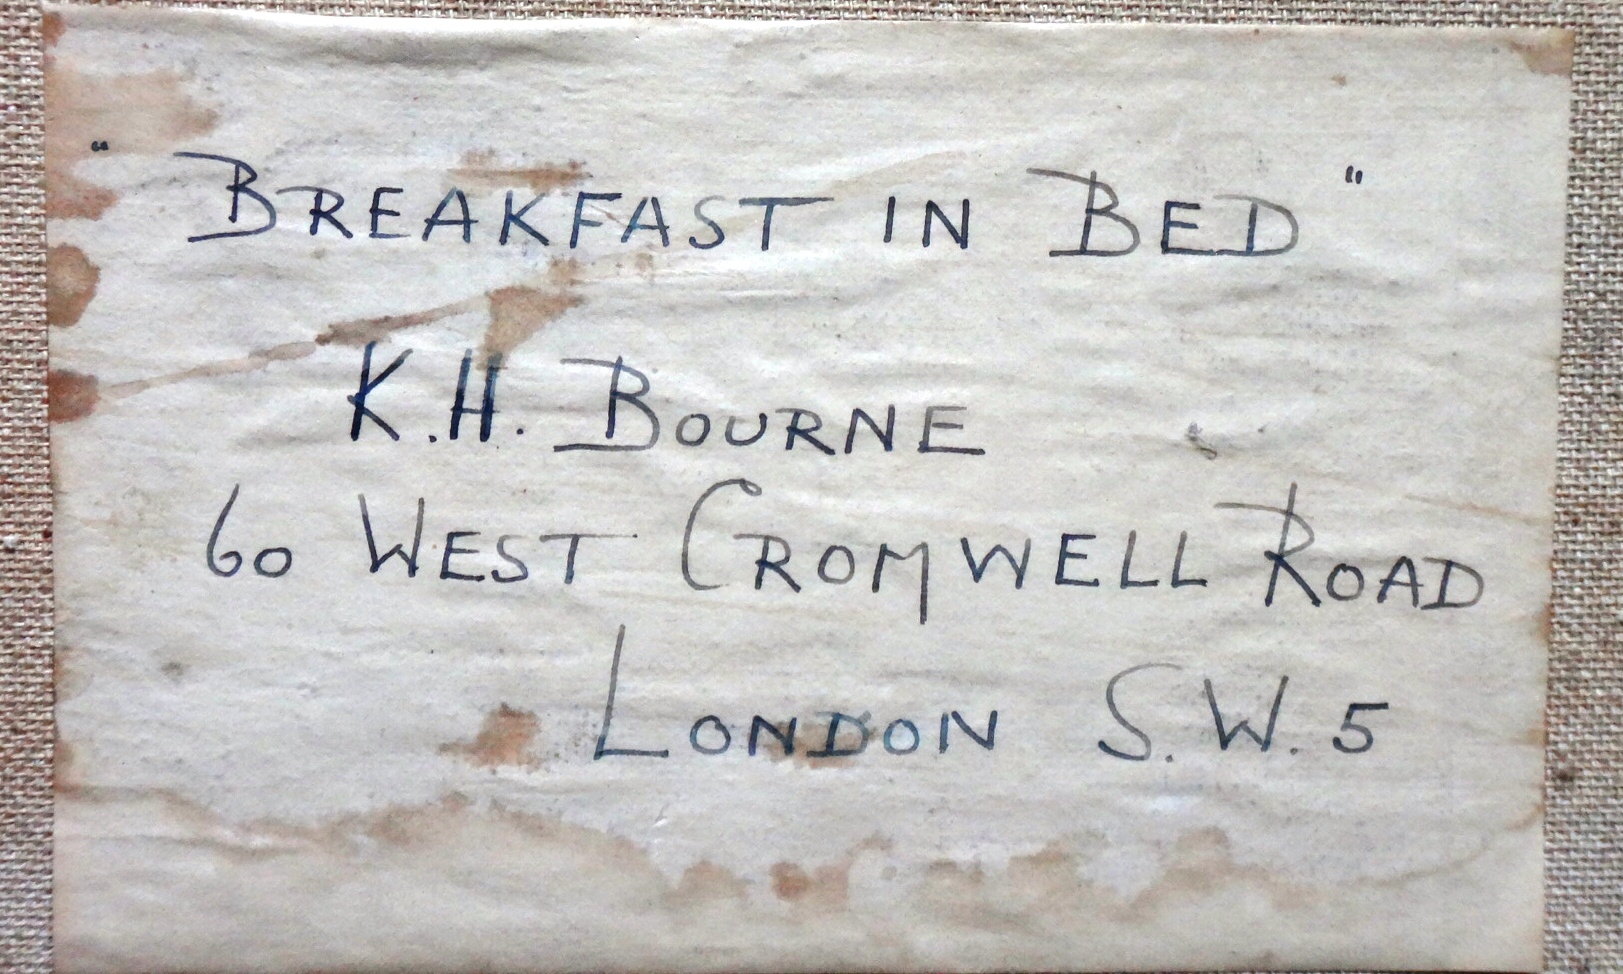 "BREAKFAST IN BED"
K.H. BOURNE
60 WEST CROMWELL ROAD
LONDON S.W.5